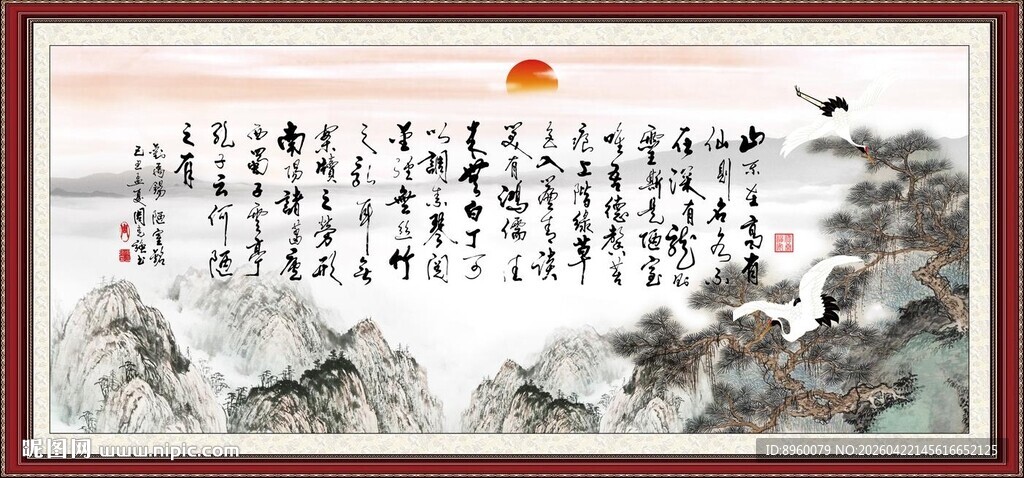 山不在高有
仙則名水不
在深有龍則
靈斯是陋室
唯吾德馨苔
痕上階綠草
色入簾青談
笑有鴻儒往
来無白丁可
以調素琴閱
金經無絲竹
之亂耳無
案牘之勞形
南陽諸葛廬
西蜀子雲亭
孔子云何陋
之有
劉禹錫 陋室銘
孟夏周書
昵图网 www.nipic.com
ID:8960079 NO:20260422145616652125